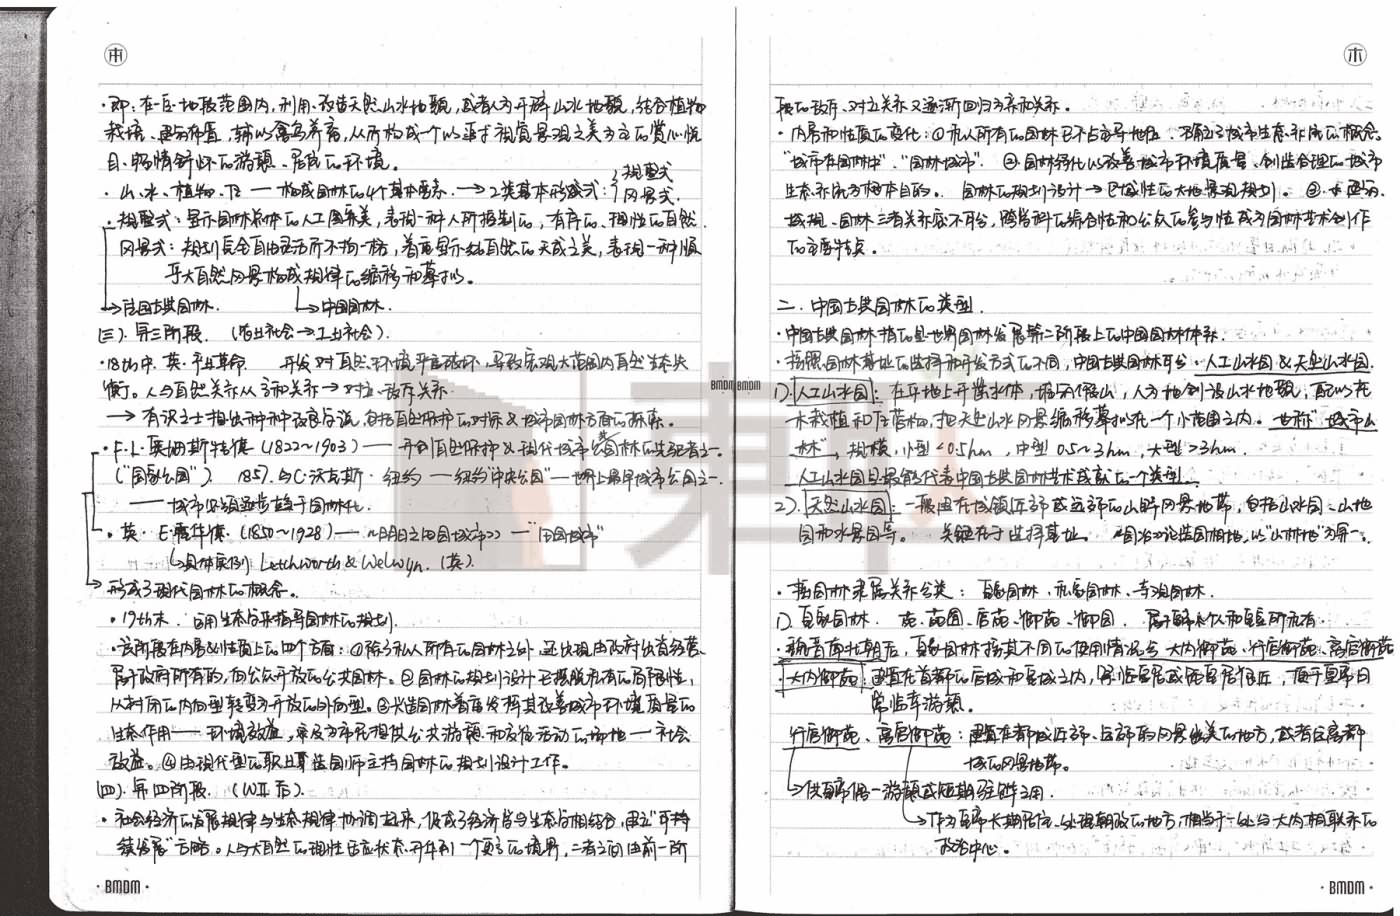 ·即:在一定地段范围内,利用、改造天然山水地貌,或者人为开辟山水地貌,结合植物
栽培、建筑布置,辅以禽鸟养畜,从而构成一个以追求视觉景观之美为主的赏心悦
目、畅情舒怀的游憩、居住的环境。
·山、水、植物、 —构成园林的4个基本要素.→2类基本形式:{规整式
风景式.
·规整式:显示园林总体的人工图案美,表现一种人所控制的,有序的、理性的自然.
风景式:规划完全自由灵活而不拘一格,着重显示纯自然的天成之美,表现一种顺
乎大自然风景构成规律的缩移和摹拟。
→法国古典园林. →中国园林.
(三).第三阶段. (农业社会→工业社会).
·18th中.英.平业革命 开发对自然环境严重破坏,导致宏观大范围内自然生态失
衡.人与自然关系从亲和关系→对立、敌斥关系.
→有识之士提出种种改良之说,包括自然保护的对策&城市园林方面的探索.
·F·L·奥姆斯特德(1822~1903)——开创自然保护&现代城市公共园林的先驱者之一.
("国家公园"). 1857.与C·沃克斯·纽约—纽约"中央公园"—世界上最早城市公园之一.
——城市必须逐步趋于园林化.
·英·E·霍华德.(1850~1928)—《明日之田园城市》—"田园城市"
(→具体实例) Letchworth & Welwyn.(英).
→形成了现代园林的概念.
·19th末. 启用生态与开指导园林的规划.
·该阶段在内容&性质上的四个方面:①除了私人所有的园林之外,还出现由政府出资经营、
属于政府所有的,向公众开放的公共园林。②园林的规划设计已摆脱私有的局限性,
从封闭的内向型转变为开放的外向型。③兴造园林着重发挥其改善城市环境质量的
生态作用——环境效益,亦及为市民提供公共游憩和交往活动的场地—社会
效益。④由现代型的职业造园师主持园林的规划设计工作。
(四).第四阶段. (WⅡ后).
·社会经济的发展规律与生态规律协调起来,促成了经济学与生态学相结合,确立"可持
续发展"战略。人与大自然的理性适应状态升华到一个更高的境界,二者之间由前一阶
·BMDM·
段的敌斥、对立关系又逐渐回归为亲和关系。
·内容和性质的变化:①私人所有的园林已不占主导地位,确立了城市生态系统的概念.
"城市在园林中"、"园林城市". ②园林绿化以改善城市环境质量、创造合理的城市
生态系统为根本目的。 园林的规划设计→已 性的大地景观规划. ③ 建筑、
城规、园林三者关系密不可分,跨学科的综合性和公众的参与性成为园林艺术创作
的主要特点。
二.中国古典园林的类型.
·中国古典园林指的是世界园林发展第二阶段上的中国园林体系.
·按照园林基址的选择和开发方式的不同,中国古典园林可分:人工山水园&天然山水园.
1).人工山水园:在平地上开凿水体,堆筑假山,人为地创设山水地貌,配以花
木栽植和建筑营构,把天然山水风景缩移摹拟在一个小范围之内.也称"城市山
林"→规模,小型<0.5hm,中型0.5~3hm,大型>3hm.
人工山水园是最能代表中国古典园林艺术成就的一个类型.
2).天然山水园:一般建在城镇近郊或远郊的山野风景地带,包括山水园、山地
园和水景园等。 关键在于选择基址. 《园冶》论造园相地,以"山林地"为第一.
·按园林隶属关系分类: 皇家园林、私家园林、寺观园林.
1).皇家园林. 苑、苑囿、宫苑、御苑、御园. 属于皇帝个人和皇室所私有.
·魏晋南北朝后,皇家园林按其不同的使用情况分大内御苑、行宫御苑、离宫御苑
·大内御苑:建置在首都的宫城和皇城之内,紧临皇居或距皇居很近,便于皇帝日
常临幸游憩.
行宫御苑、离宫御苑:建置在都城近郊、远郊的风景优美的地方,或者远离都
城的风景地带。
→供皇帝偶一游憩或短期驻跸之用.
→作为皇帝长期居住、处理朝政的地方,相当于一处与大内相联系的
政治中心。
·BMDM·
BMDM BMDM